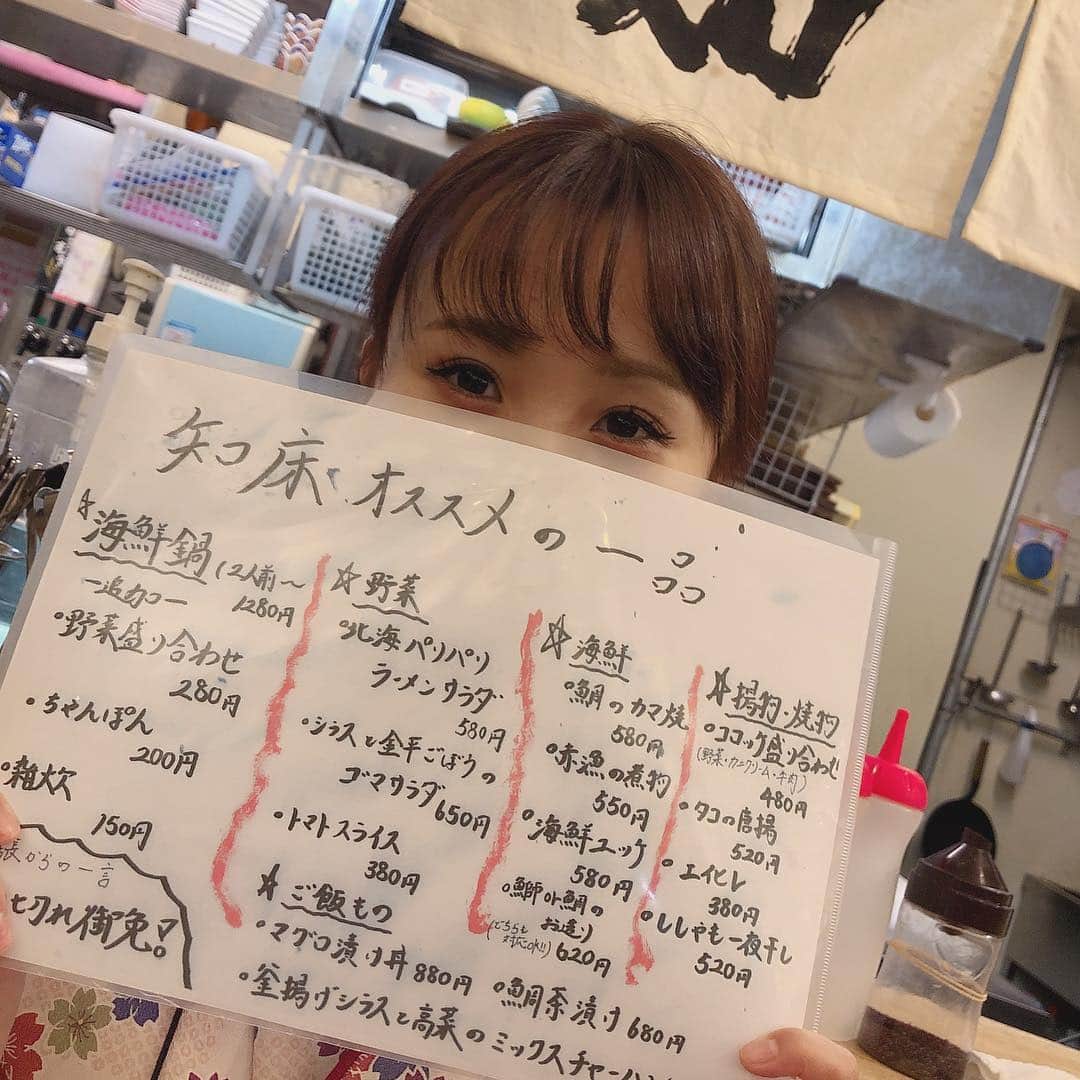 知床、オススメの一品
☆海鮮鍋(2人前〜
1280円
ー追加ー
・野菜盛り合わせ
280円
・ちゃんぽん
200円
・雑炊
150円
長からの一言
切れ御免!
☆野菜
・北海パリパリ
ラーメンサラダ
580円
・シラスと金平ごぼうの
ゴマサラダ 650円
・トマトスライス
380円
☆ご飯もの
・マグロ漬け丼 880円
・釜揚げシラスと高菜のミックスチャーハン
・鯛茶漬け 680円
☆海鮮
・鯛のカマ焼
580円
・赤漁の煮物
550円
・海鮮ユッケ
580円
・鰤or鯛の
お造り
(どちらも
対応OK!!) 620円
☆揚物・焼物
・コロッケ盛り合わせ
(野菜・カニクリーム・牛肉)
480円
・タコの唐揚
520円
・エイヒレ
380円
・ししゃも一夜干し
520円